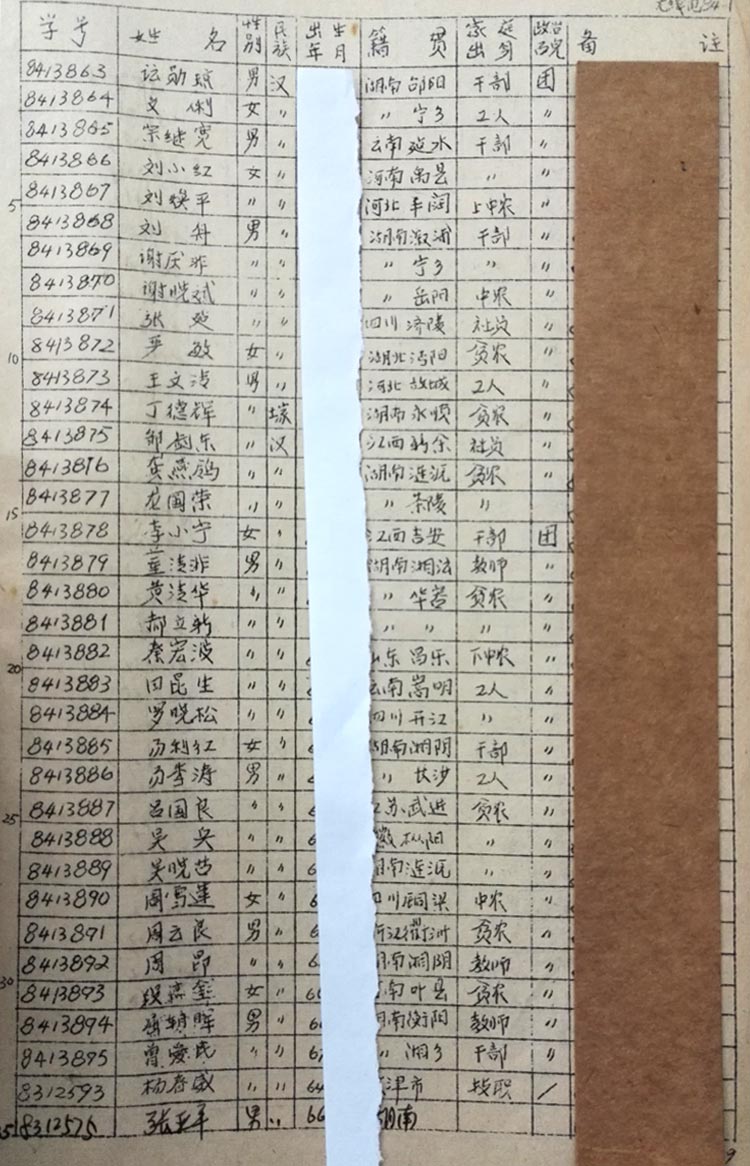 学号 姓名 性别 民族 出生年月 籍贯 家庭出身 政治面貌 备注
8413863 男 汉 湖南邵阳 干部 团
8413864 文俐 女 〃 〃 宁乡 工人 〃
8413865 宗继宽 男 〃 云南 干部 〃
8413866 刘小红 女 〃 河南禹县 〃 〃
5 8413867 刘焕平 〃 〃 河北 上中农 〃
8413868 刘舟 男 〃 湖南溆浦 干部 〃
8413869 〃 〃 〃 宁乡 〃 〃
8413870 谢晓斌 〃 〃 〃 岳阳 中农 〃
8413871 张延 〃 〃 四川涪陵 社员 〃
10 8413872 严敏 女 〃 湖北沔阳 贫农 〃
8413873 王文清 男 〃 河北故城 工人 〃
8413874 丁德辉 〃 湖南永顺 贫农 〃
8413875 邹 乐 〃 汉 江西新余 社员 〃
8413876 龚燕鸽 〃 〃 湖南涟源 贫农 〃
15 8413877 龙国荣 〃 〃 〃 茶陵 〃
8413878 李小宁 女 〃 江西吉安 干部 团
8413879 董清非 男 〃 湖南 教师 〃
8413880 黄清华 〃 〃 〃 华容 贫农 〃
8413881 郝立新 〃 〃 〃 〃 〃 〃
20 8413882 秦宏波 〃 〃 东昌乐 下中农 〃
8413883 田昆生 〃 〃 云南嵩明 工人 〃
8413884 罗晓松 〃 〃 四川开江 〃 〃
8413885 汤利红 女 〃 湖南湘阴 干部 〃
8413886 汤李涛 男 〃 〃 长沙 工人 〃
25 8413887 吕国良 〃 〃 苏武进 贫农 〃
8413888 吴兵 〃 〃 6 徽枞阳 〃 〃
8413889 吴晓苦 〃 〃 6 南涟源 〃 〃
8413890 周雪莲 女 〃 6 川铜梁 中农 〃
8413891 周云良 男 〃 6 江衢州 贫农 〃
8413892 周昂 〃 〃 6 南湘阴 教师 〃
30 8413893 段燕 女 〃 6 南叶县 贫农 〃
8413894 男 〃 6 南衡阳 教师 〃
8413895 曾爱民 〃 〃 6 〃 湘乡 干部 〃
8312593 杨春威 〃 〃 64 津市 技职 /
8312575 张亚平 男 〃 66 湖南
9